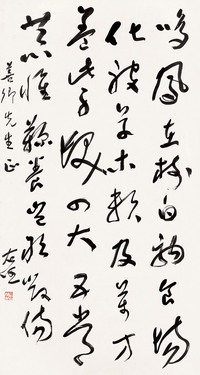 鳴鳳在樹白駒食場
化被草木賴及萬方
蓋此身髮四大五常
恭惟鞠養豈敢毀傷
善卿先生正
右任